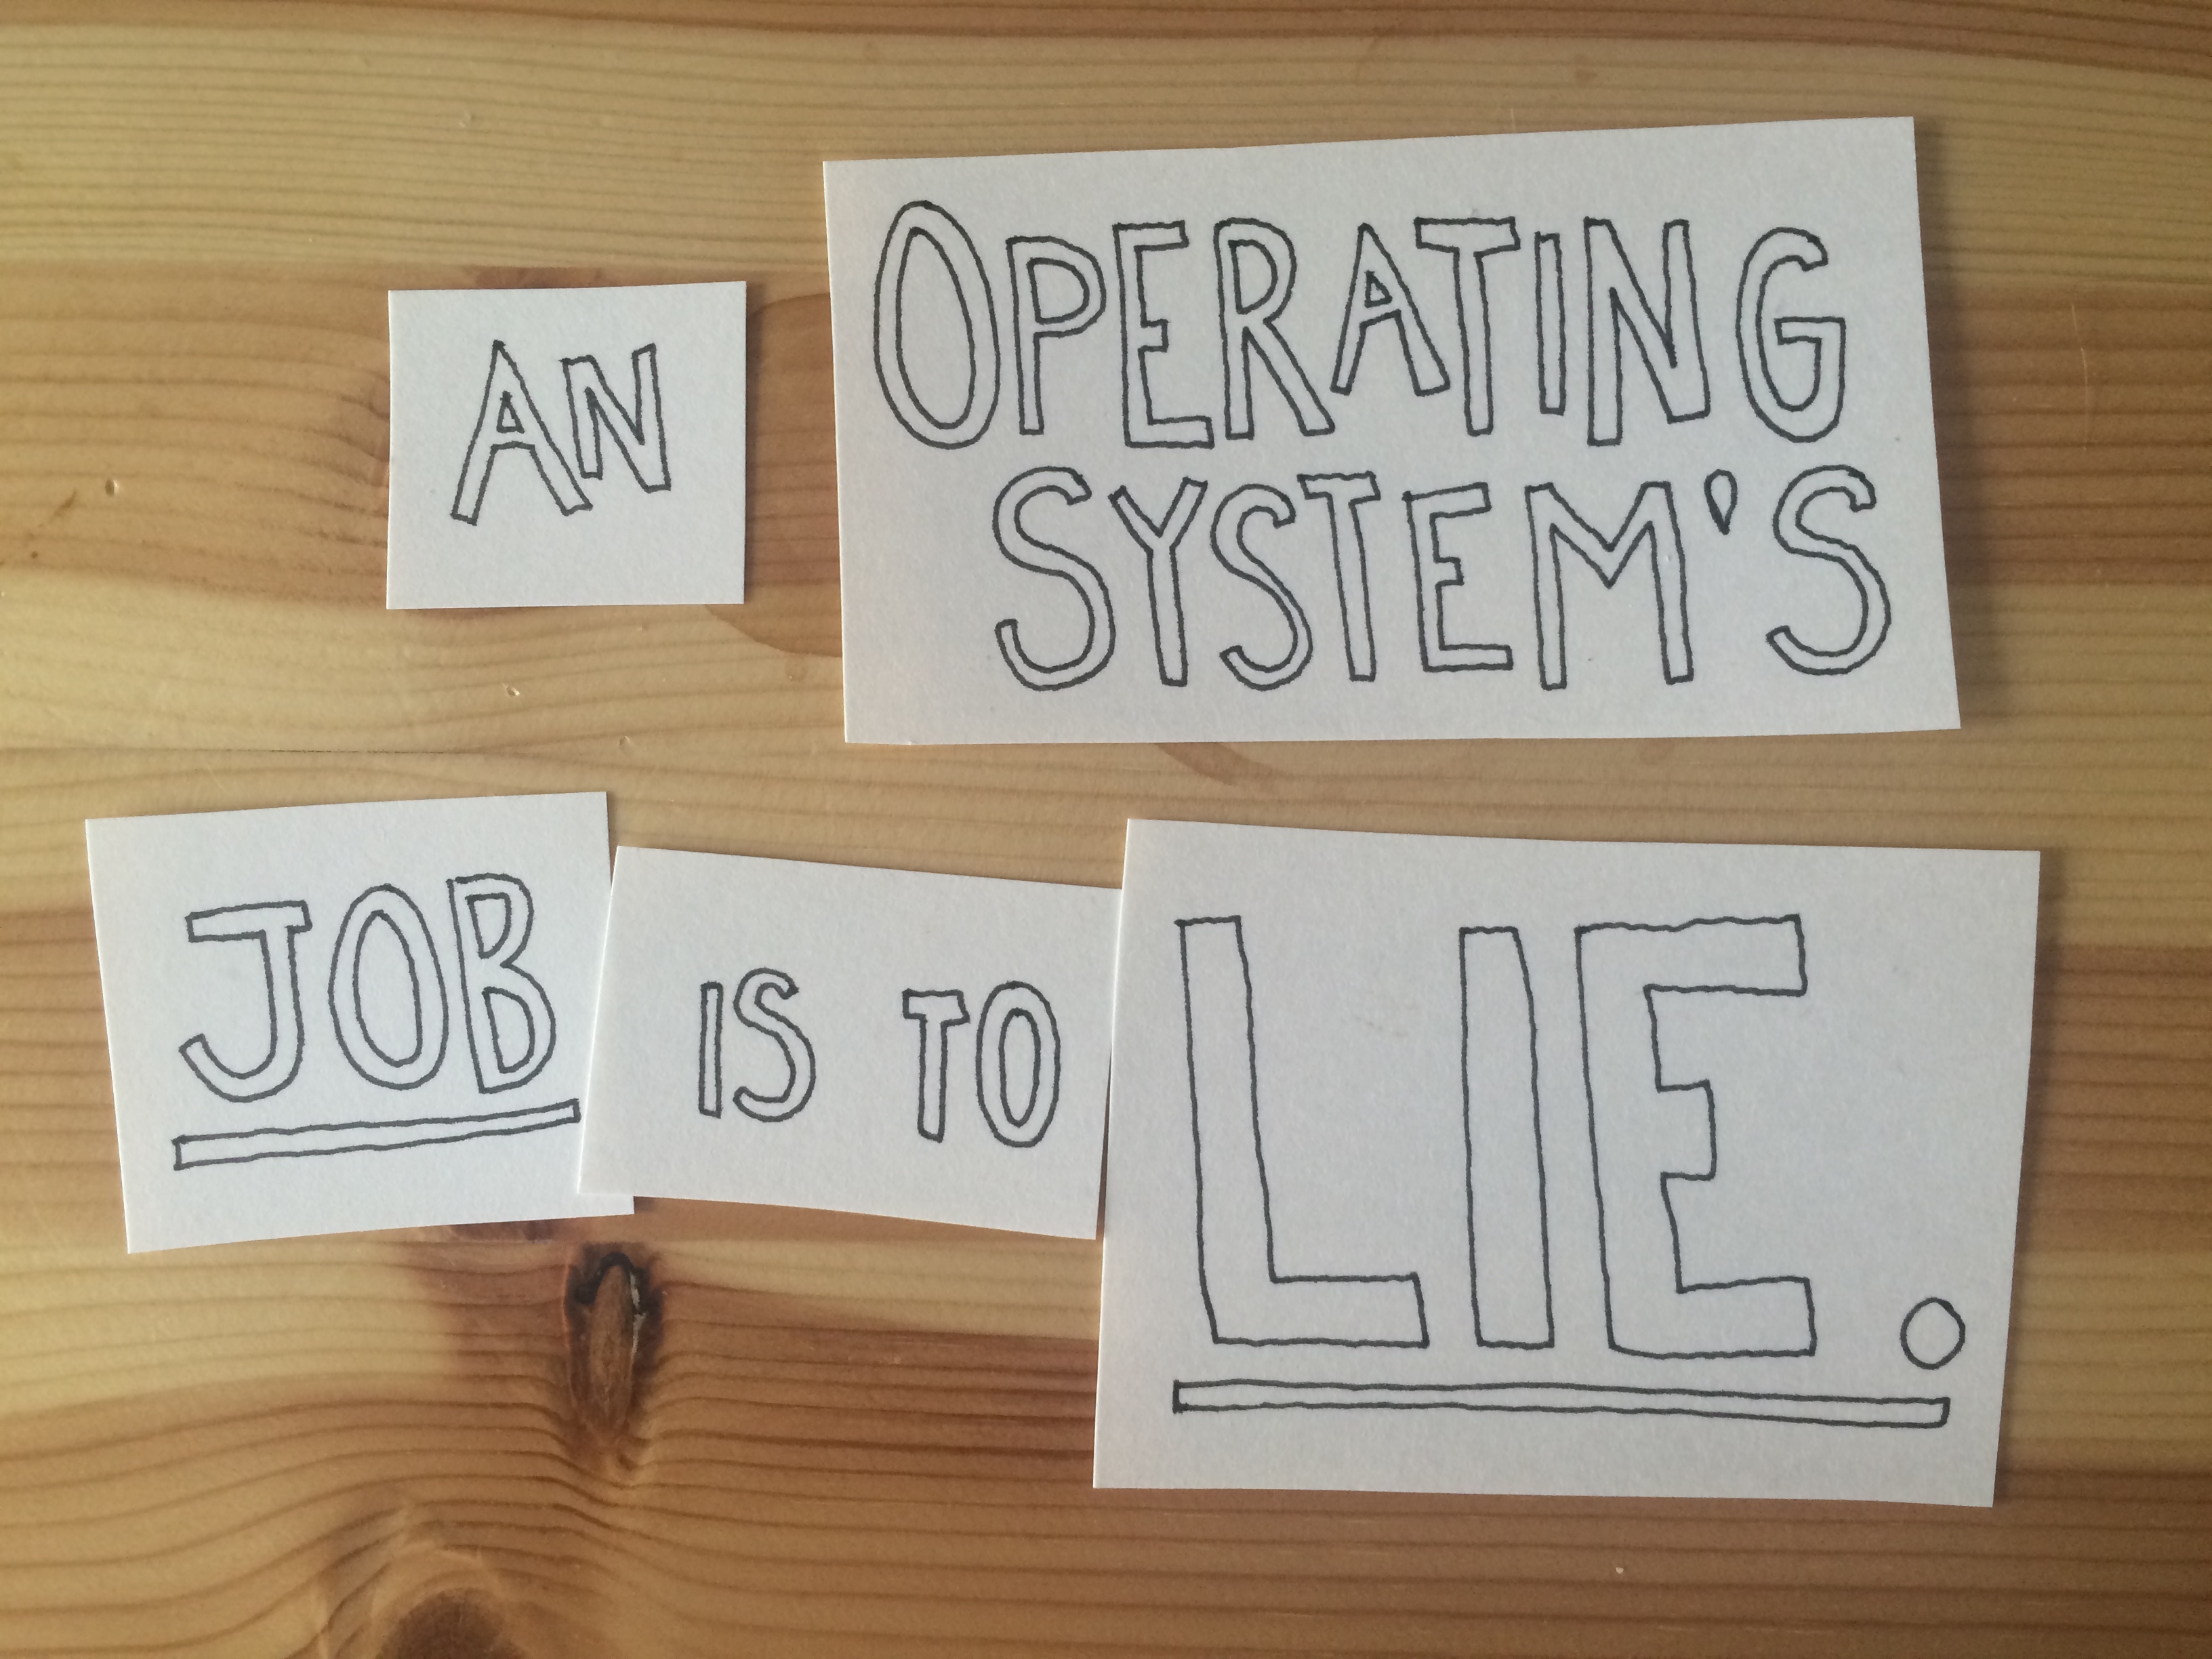 AN OPERATING
SYSTEM'S
JOB IS TO LIE.